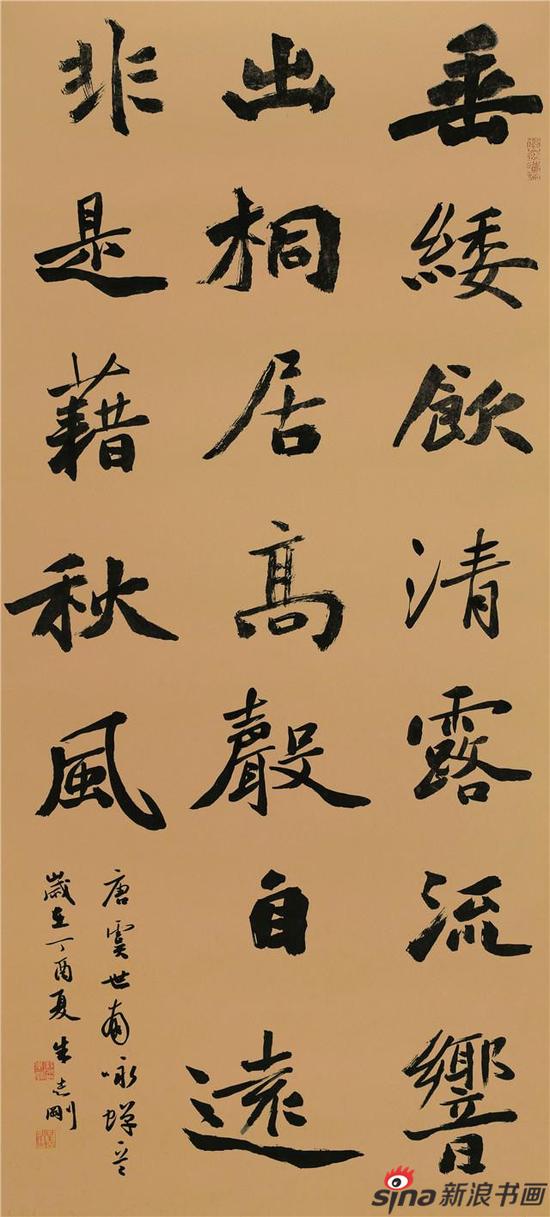 垂緌飲清露流響
出桐居高聲自遠
非是藉秋風
唐虞世南咏蟬句
歲在丁酉夏朱志剛
sina新浪书画